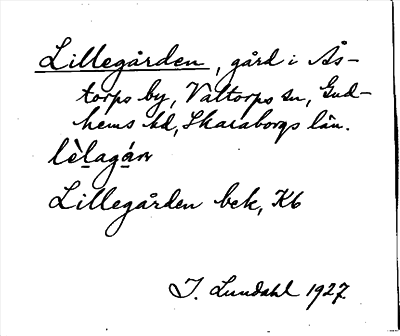 Lillegården, gård i Ås-
torps by, Valtorps sn, Gud-
hems hd, Skaraborgs län.
lèlagár
Lillegården bek, Kb
I. Lundahl 1927.